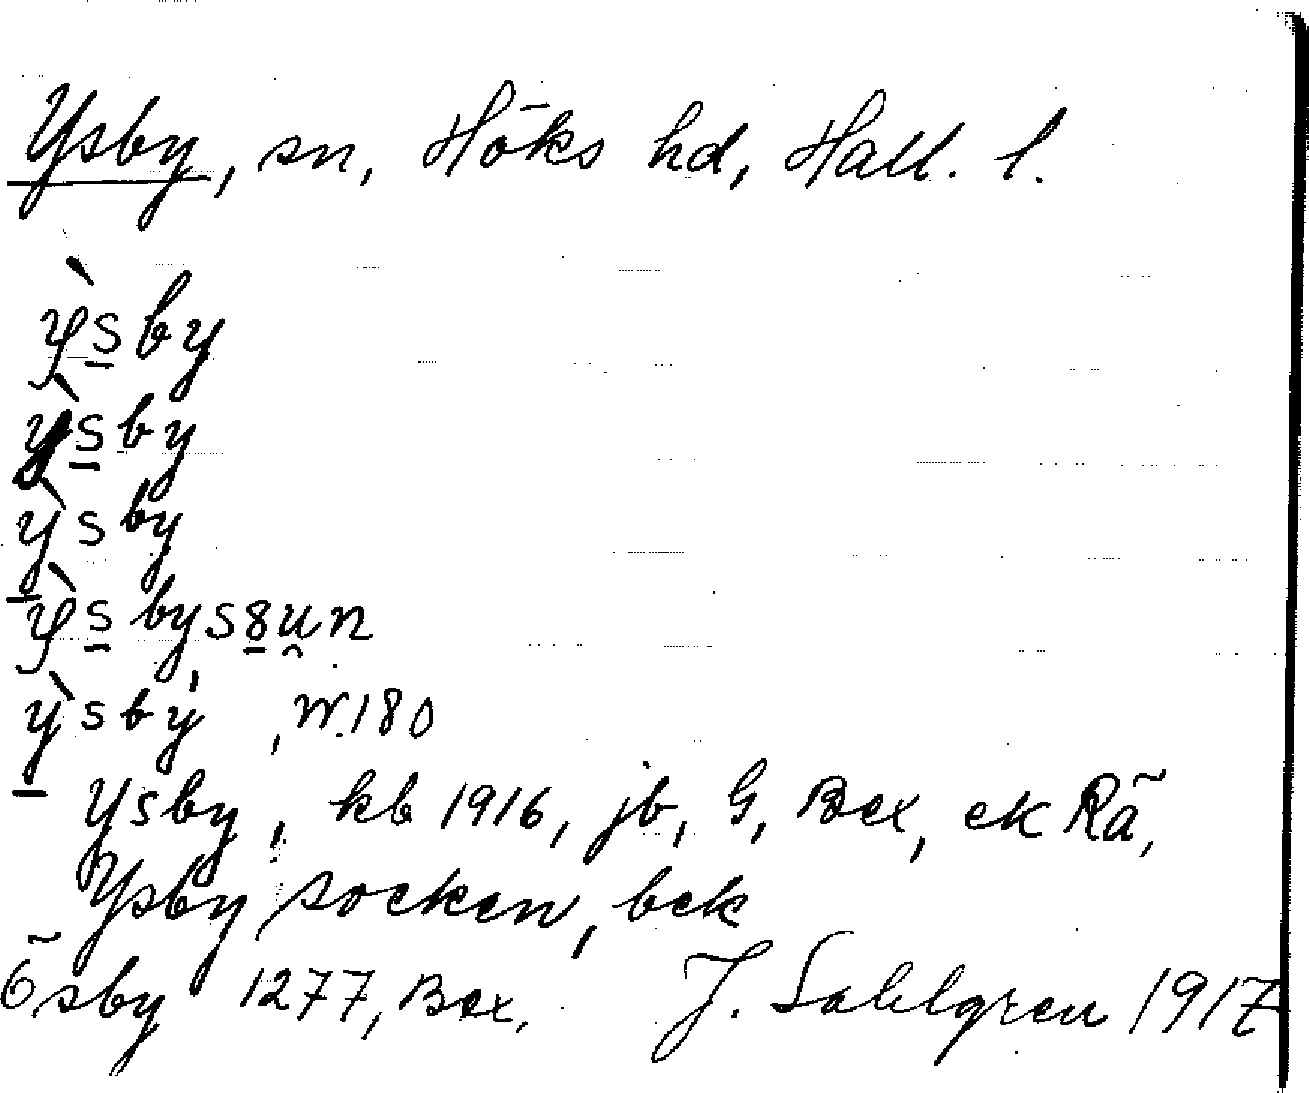 Ysby, sn, Höks hd, Hall. l.
ỳsby
ỳsby
ỳsby
ỳsbysun
ỳsby, W.180
Ysby, kb 1916, jb, G, Bex, ek Rä,
Ysby socken, bek
Ösby 1277, Bex. J. Sahlgren 1917